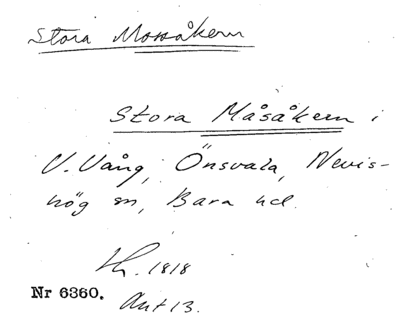 Stora Mossåkern
Stora Måsåkern i
V. Vång, Önsvala, Nevis-
hög sn, Bara hd.
1818
Nr 6360.
Akt 13.